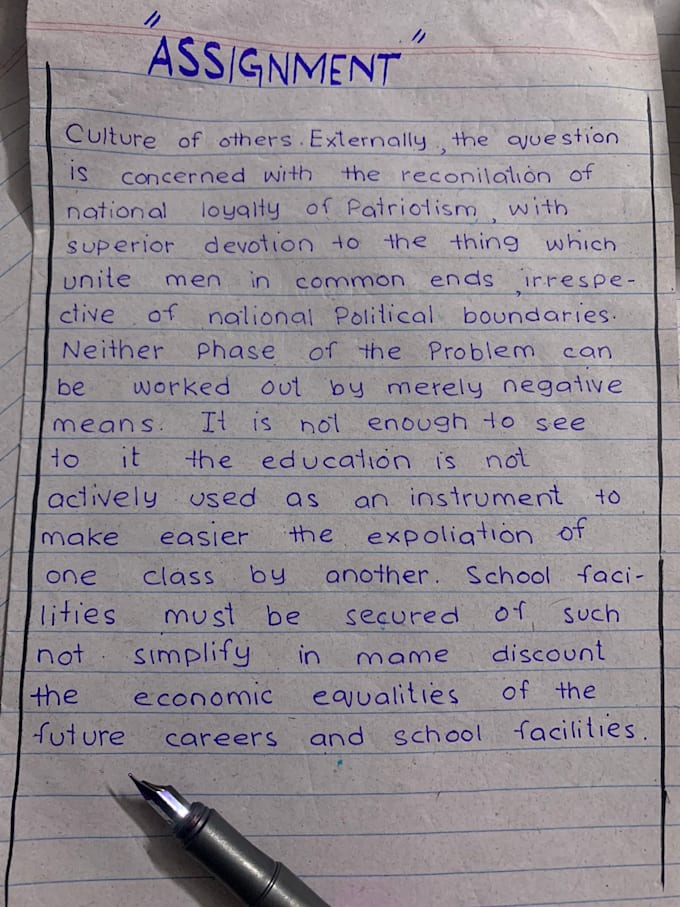 "ASSIGNMENT"
Culture of others. Externally, the question
is concerned with the reconilation of
national loyalty of Patriotism, with
superior devotion to the thing which
unite men in common ends, irrespe-
ctive of national Political boundaries.
Neither Phase of the Problem can
be worked out by merely negative
means. It is not enough to see
to it the education is not
actively used as an instrument to
make easier the expoliation of
one class by another. School faci-
lities must be secured of such
not simplify in mame discount
the economic equalities of the
future careers and school facilities.